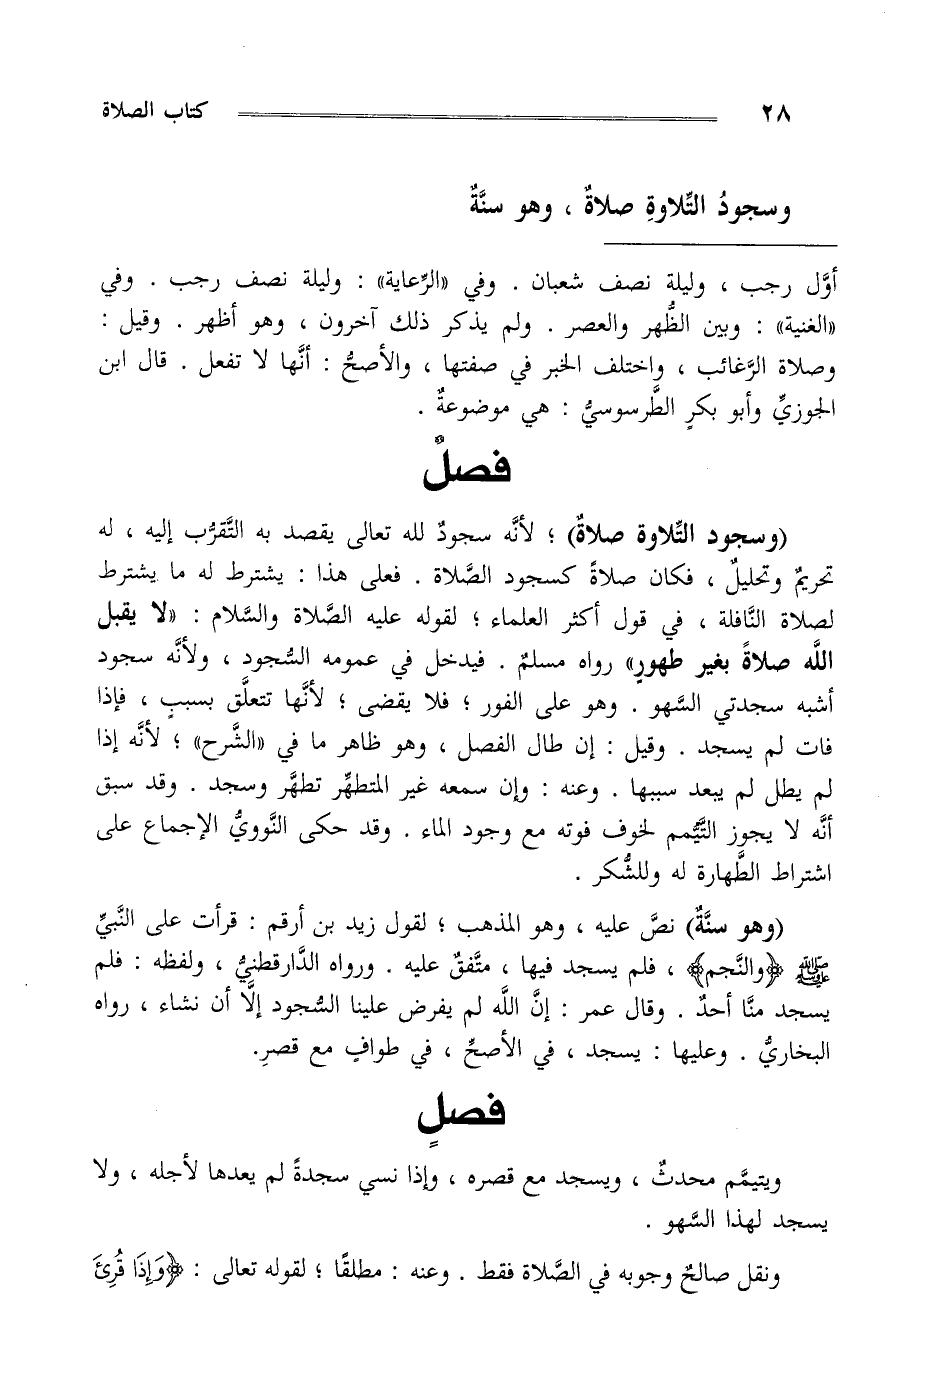 ٢٨ كتاب الصلاة
وسجودُ التِّلاوةِ صلاةٌ ، وهو سنَّةٌ
أوَّل رجب ، وليلة نصف شعبان . وفي «الرِّعاية» : وليلة نصف رجب . وفي
«الغنية» : وبين الظُّهر والعصر . ولم يذكر ذلك آخرون ، وهو أظهر . وقيل :
وصلاة الرَّغائب ، واختلف الخبر في صفتها ، والأصحُّ : أنَّها لا تفعل . قال ابن
الجوزيِّ وأبو بكرٍ الطَّرسوسيُّ : هي موضوعةٌ .
فصلٌ
(وسجود التِّلاوة صلاةٌ) ؛ لأنَّه سجودٌ لله تعالى يقصد به التَّقرُّب إليه ، له
تحريمٌ وتحليلٌ ، فكان صلاةً كسجود الصَّلاة . فعلى هذا : يشترط له ما يشترط
لصلاة النَّافلة ، في قول أكثر العلماء ؛ لقوله عليه الصَّلاة والسَّلام : «لا يقبل
اللَّه صلاةً بغير طهورٍ» رواه مسلمٌ . فيدخل في عمومه السُّجود ، ولأنَّه سجود
أشبه سجدتي السَّهو . وهو على الفور ؛ فلا يقضى ؛ لأنَّها تتعلَّق بسببٍ ، فإذا
فات لم يسجد . وقيل : إن طال الفصل ، وهو ظاهر ما في «الشَّرح» ؛ لأنَّه إذا
لم يطل لم يبعد سببها . وعنه : وإن سمعه غير المتطهِّر تطهَّر وسجد . وقد سبق
أنَّه لا يجوز التَّيُّمم لخوف فوته مع وجود الماء . وقد حكى النَّوويُّ الإجماع على
اشتراط الطَّهارة له وللشُّكر .
(وهو سنَّةٌ) نصَّ عليه ، وهو المذهب ؛ لقول زيد بن أرقم : قرأت على النَّبيِّ
ﷺ ﴿والنَّجم﴾ ، فلم يسجد فيها ، متَّفقٌ عليه . ورواه الدَّارقطنيُّ ، ولفظه : فلم
يسجد منَّا أحدٌ . وقال عمر : إنَّ اللَّه لم يفرض علينا السُّجود إلَّا أن نشاء ، رواه
البخاريُّ . وعليها : يسجد ، في الأصحِّ ، في طوافٍ مع قصرِ.
فصلٍ
ويتيمَّم محدثٌ ، ويسجد مع قصره ، وإذا نسي سجدةً لم يعدها لأجله ، ولا
يسجد لهذا السَّهو .
ونقل صالحٌ وجوبه في الصَّلاة فقط . وعنه : مطلقًا ؛ لقوله تعالى : ﴿وَإِذَا قُرِئَ